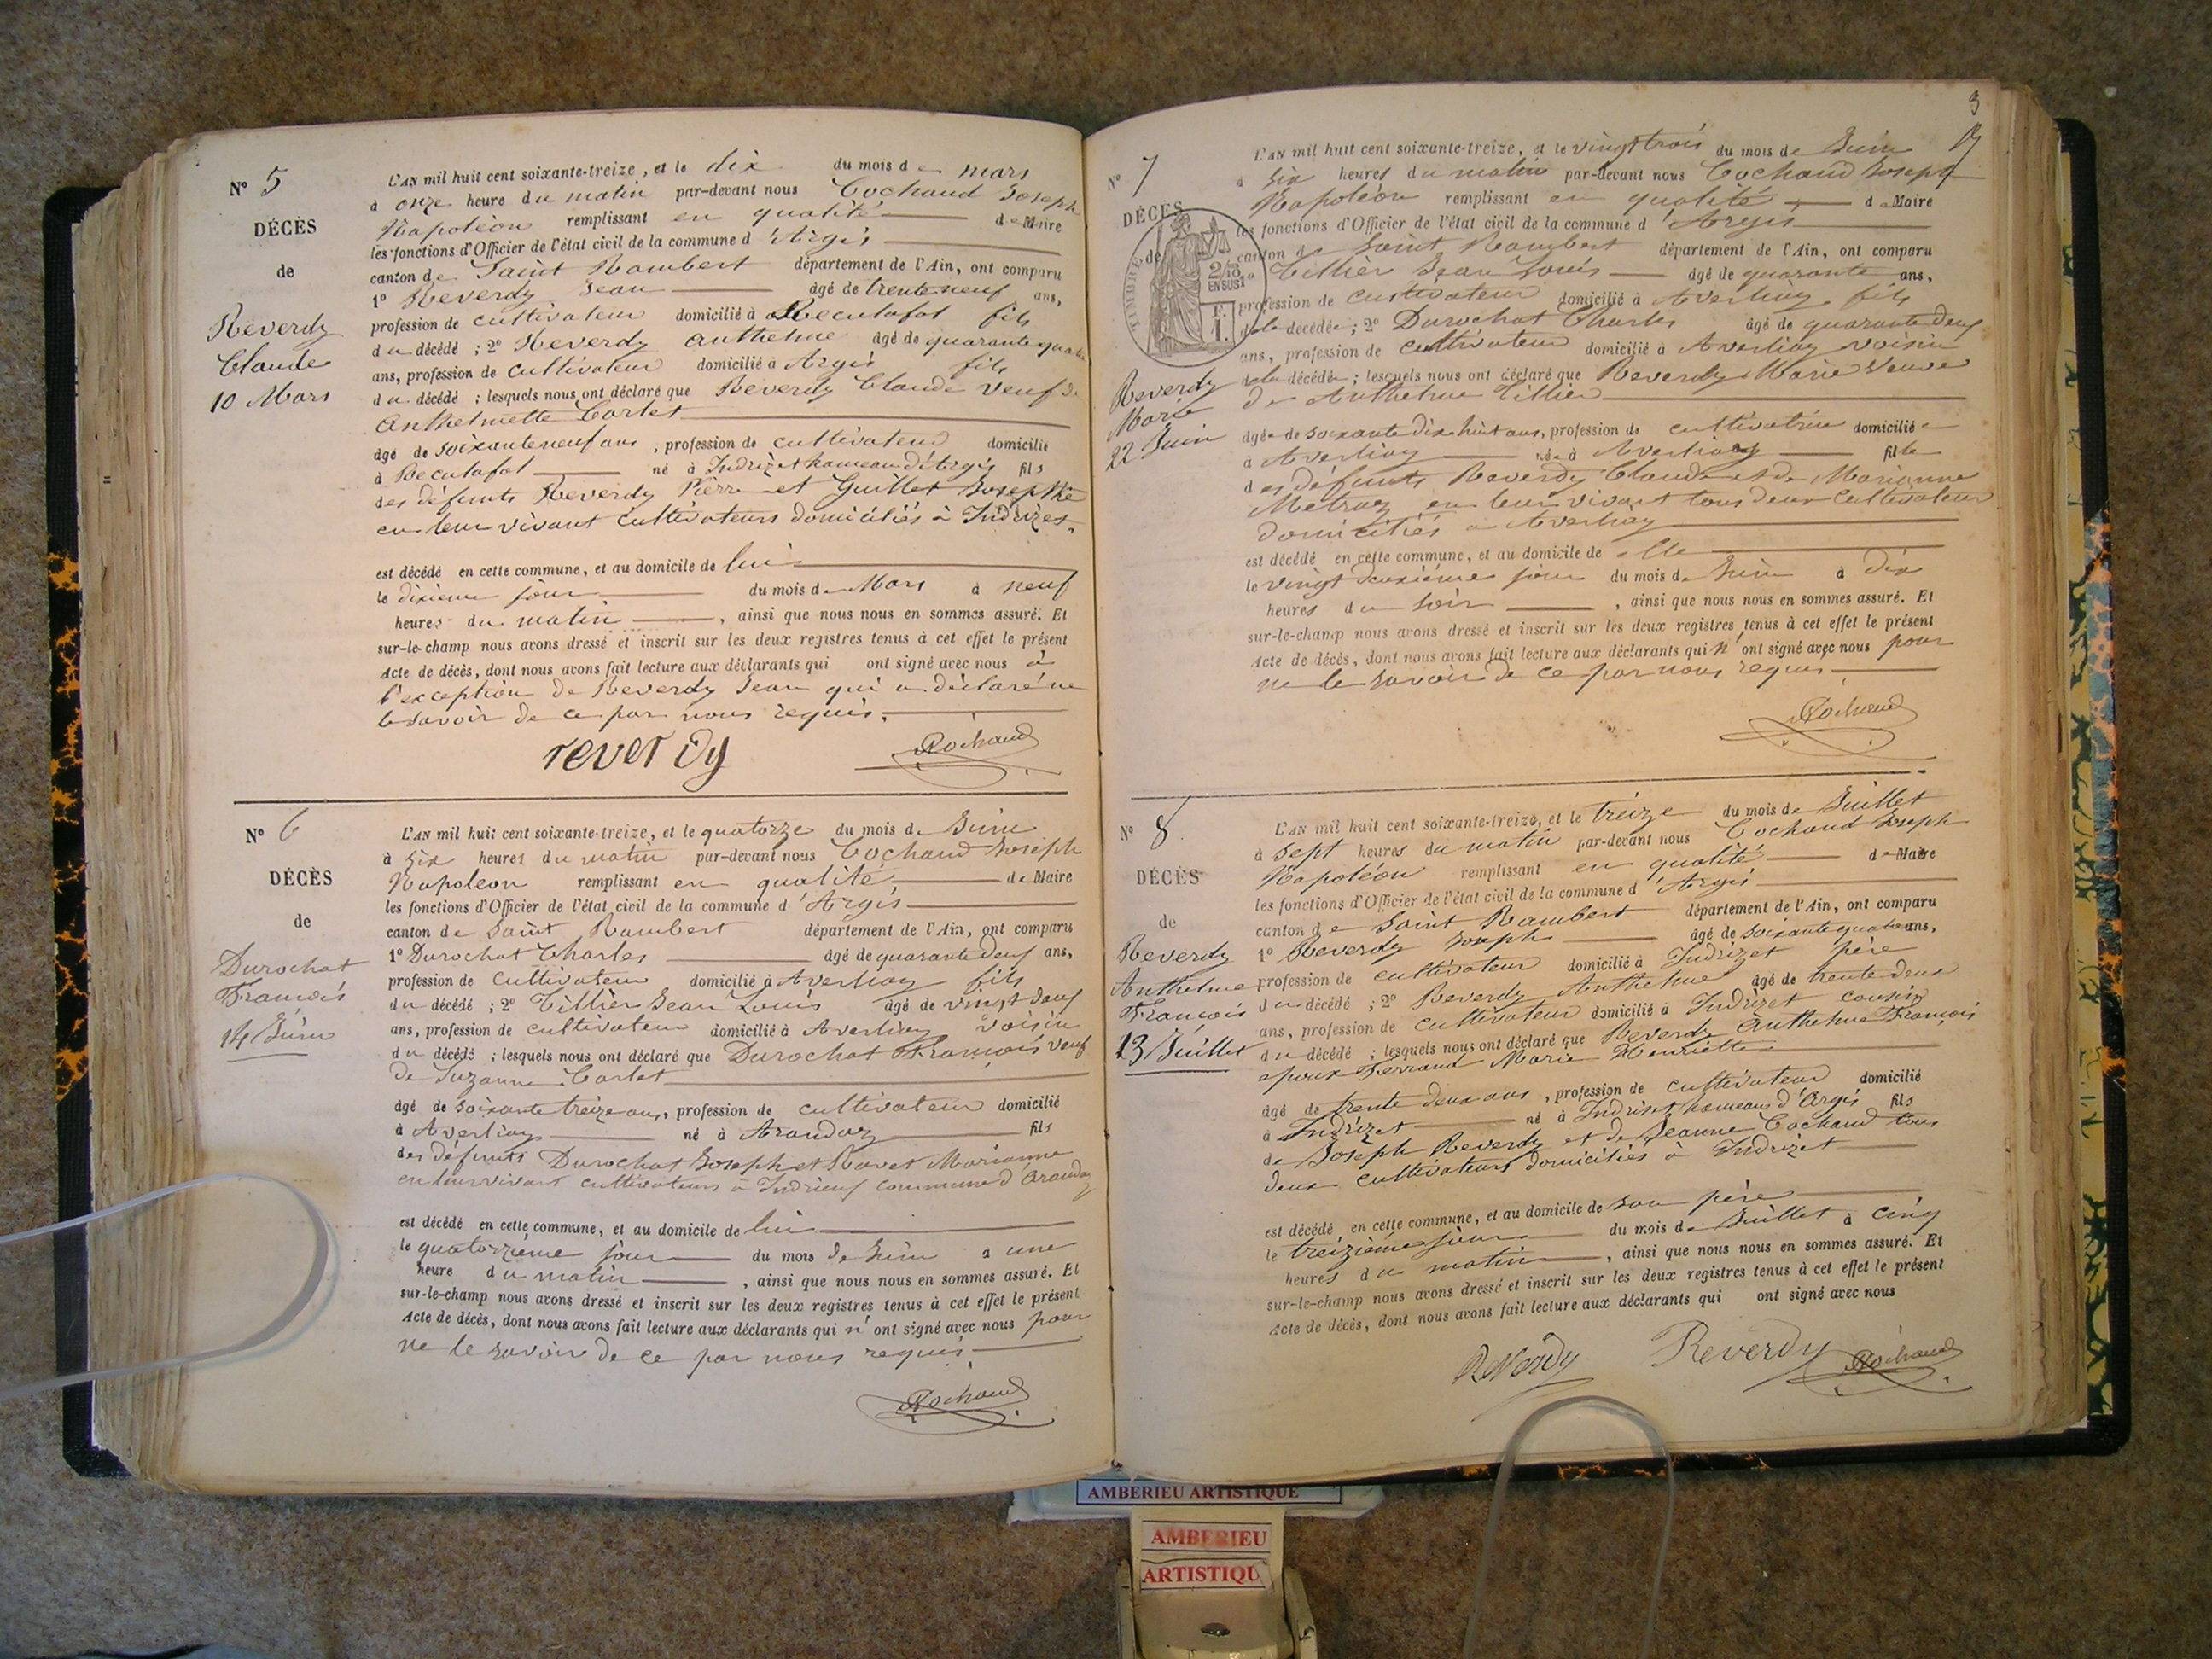 N° 5
DÉCÈS
de
Reverdy
Claude
10 Mars
L'AN mil huit cent soixante-treize, et le dix du mois de mars
à onze heure du matin par-devant nous Cochaud Joseph
Napoléon remplissant en qualité de Maire
les fonctions d'Officier de l'état civil de la commune d'Argis
canton de Saint Rambert département de l'Ain, ont comparu
1° Reverdy Jean âgé de trente neuf ans,
profession de cultivateur domicilié à Reculafol fils
du décédé ; 2° Reverdy Anthelme âgé de quarante quatre
ans, profession de cultivateur domicilié à Argis fils
du décédé ; lesquels nous ont déclaré que Reverdy Claude veuf de
Anthelmette Carlet
âgé de soixante neuf ans, profession de cultivateur domicilié
à Reculafol né à Indrizet hameau d'Argis fils
des défunts Reverdy Pierre et Guillet Josephte
en leur vivant cultivateurs domiciliés à Indrizet
est décédé en cette commune, et au domicile de lui
le dixieme jour du mois de Mars à neuf
heures du matin, ainsi que nous nous en sommes assuré. Et
sur-le-champ nous avons dressé et inscrit sur les deux registres tenus à cet effet le présent
Acte de décès, dont nous avons fait lecture aux déclarants qui ont signé avec nous à
l'exception de Reverdy Jean qui a déclaré ne
le savoir de ce par nous requis.
reverdy Cochaud
N° 6
DÉCÈS
de
Durochat
François
14 Juin
L'AN mil huit cent soixante-treize, et le quatorze du mois de Juin
à six heures du matin par-devant nous Cochaud Joseph
Napoleon remplissant en qualité de Maire
les fonctions d'Officier de l'état civil de la commune d'Argis
canton de Saint Rambert département de l'Ain, ont comparu
1° Durochat Charles âgé de quarante deux ans,
profession de cultivateur domicilié à Averliaz fils
du décédé ; 2° Tillier Jean Louis âgé de vingt
ans, profession de cultivateur domicilié à Averliaz voisin
du décédé ; lesquels nous ont déclaré que Durochat François veuf
de Suzanne Carlet
âgé de soixante treize ans, profession de cultivateur domicilié
à Averliaz né à Arandaz fils
des défunts Durochat Joseph et Ravet Marianne
en leur vivant cultivateurs à Indrieux commune d'Arandaz
est décédé en cette commune, et au domicile de lui
le quatorzième jour du mois de Juin à une
heure du matin, ainsi que nous nous en sommes assuré. Et
sur-le-champ nous avons dressé et inscrit sur les deux registres tenus à cet effet le présent
Acte de décès, dont nous avons fait lecture aux déclarants qui n'ont signé avec nous pour
ne le savoir de ce par nous requis
Cochaud
3
N° 7
DÉCÈS
de
TIMBRE
2/10
EN SUS
1 F.
Reverdy
Marie
22 Juin
L'AN mil huit cent soixante-treize, et le vingt trois du mois de Juin
à six heures du matin par-devant nous Cochaud Joseph
Napoléon remplissant en qualité de Maire
les fonctions d'Officier de l'état civil de la commune d'Argis
canton de Saint Rambert département de l'Ain, ont comparu
1° Tillier Jean Louis âgé de quarante ans,
profession de cultivateur domicilié à Averliaz fils
de la décédée ; 2° Durochat Charles âgé de quarante deux
ans, profession de cultivateur domicilié à Averliaz voisin
de la décédée ; lesquels nous ont déclaré que Reverdy Marie Veuve
de Anthelme Tillier
âgée de soixante dix huit ans, profession de cultivatrice domiciliée
à Averliaz née à Averliaz fille
des défunts Reverdy Claude et de Marianne
Metraz en leur vivant tous deux cultivateurs
domiciliés à Averliaz
est décédé en cette commune, et au domicile de elle
le vingt deuxième jour du mois de Juin à dix
heures du soir, ainsi que nous nous en sommes assuré. Et
sur-le-champ nous avons dressé et inscrit sur les deux registres tenus à cet effet le présent
Acte de décès, dont nous avons fait lecture aux déclarants qui n'ont signé avec nous pour
ne le savoir de ce par nous requis
Cochaud
N° 8
DÉCÈS
de
Reverdy
Anthelme
François
13 Juillet
L'AN mil huit cent soixante-treize, et le treize du mois de Juillet
à sept heures du matin par-devant nous Cochaud Joseph
Napoléon remplissant en qualité de Maire
les fonctions d'Officier de l'état civil de la commune d'Argis
canton de Saint Rambert département de l'Ain, ont comparu
1° Reverdy Joseph âgé de soixante quatre ans,
profession de cultivateur domicilié à Indrizet père
du décédé ; 2° Reverdy Anthelme âgé de trente deux
ans, profession de cultivateur domicilié à Indrizet cousin
du décédé ; lesquels nous ont déclaré que Reverdy Anthelme François
epoux Ferrand Marie Henriette
âgé de trente deux ans, profession de cultivateur domicilié
à Indrizet né à Indrizet hameau d'Argis fils
de Joseph Reverdy et de Jeanne Cochaud tous
deux cultivateurs domiciliés à Indrizet
est décédé en cette commune, et au domicile de son père
le treizième jour du mois de Juillet à cinq
heures du matin, ainsi que nous nous en sommes assuré. Et
sur-le-champ nous avons dressé et inscrit sur les deux registres tenus à cet effet le présent
Acte de décès, dont nous avons fait lecture aux déclarants qui ont signé avec nous
Reverdy Reverdy Cochaud
AMBERIEU ARTISTIQUE
AMBERIEU
ARTISTIQU